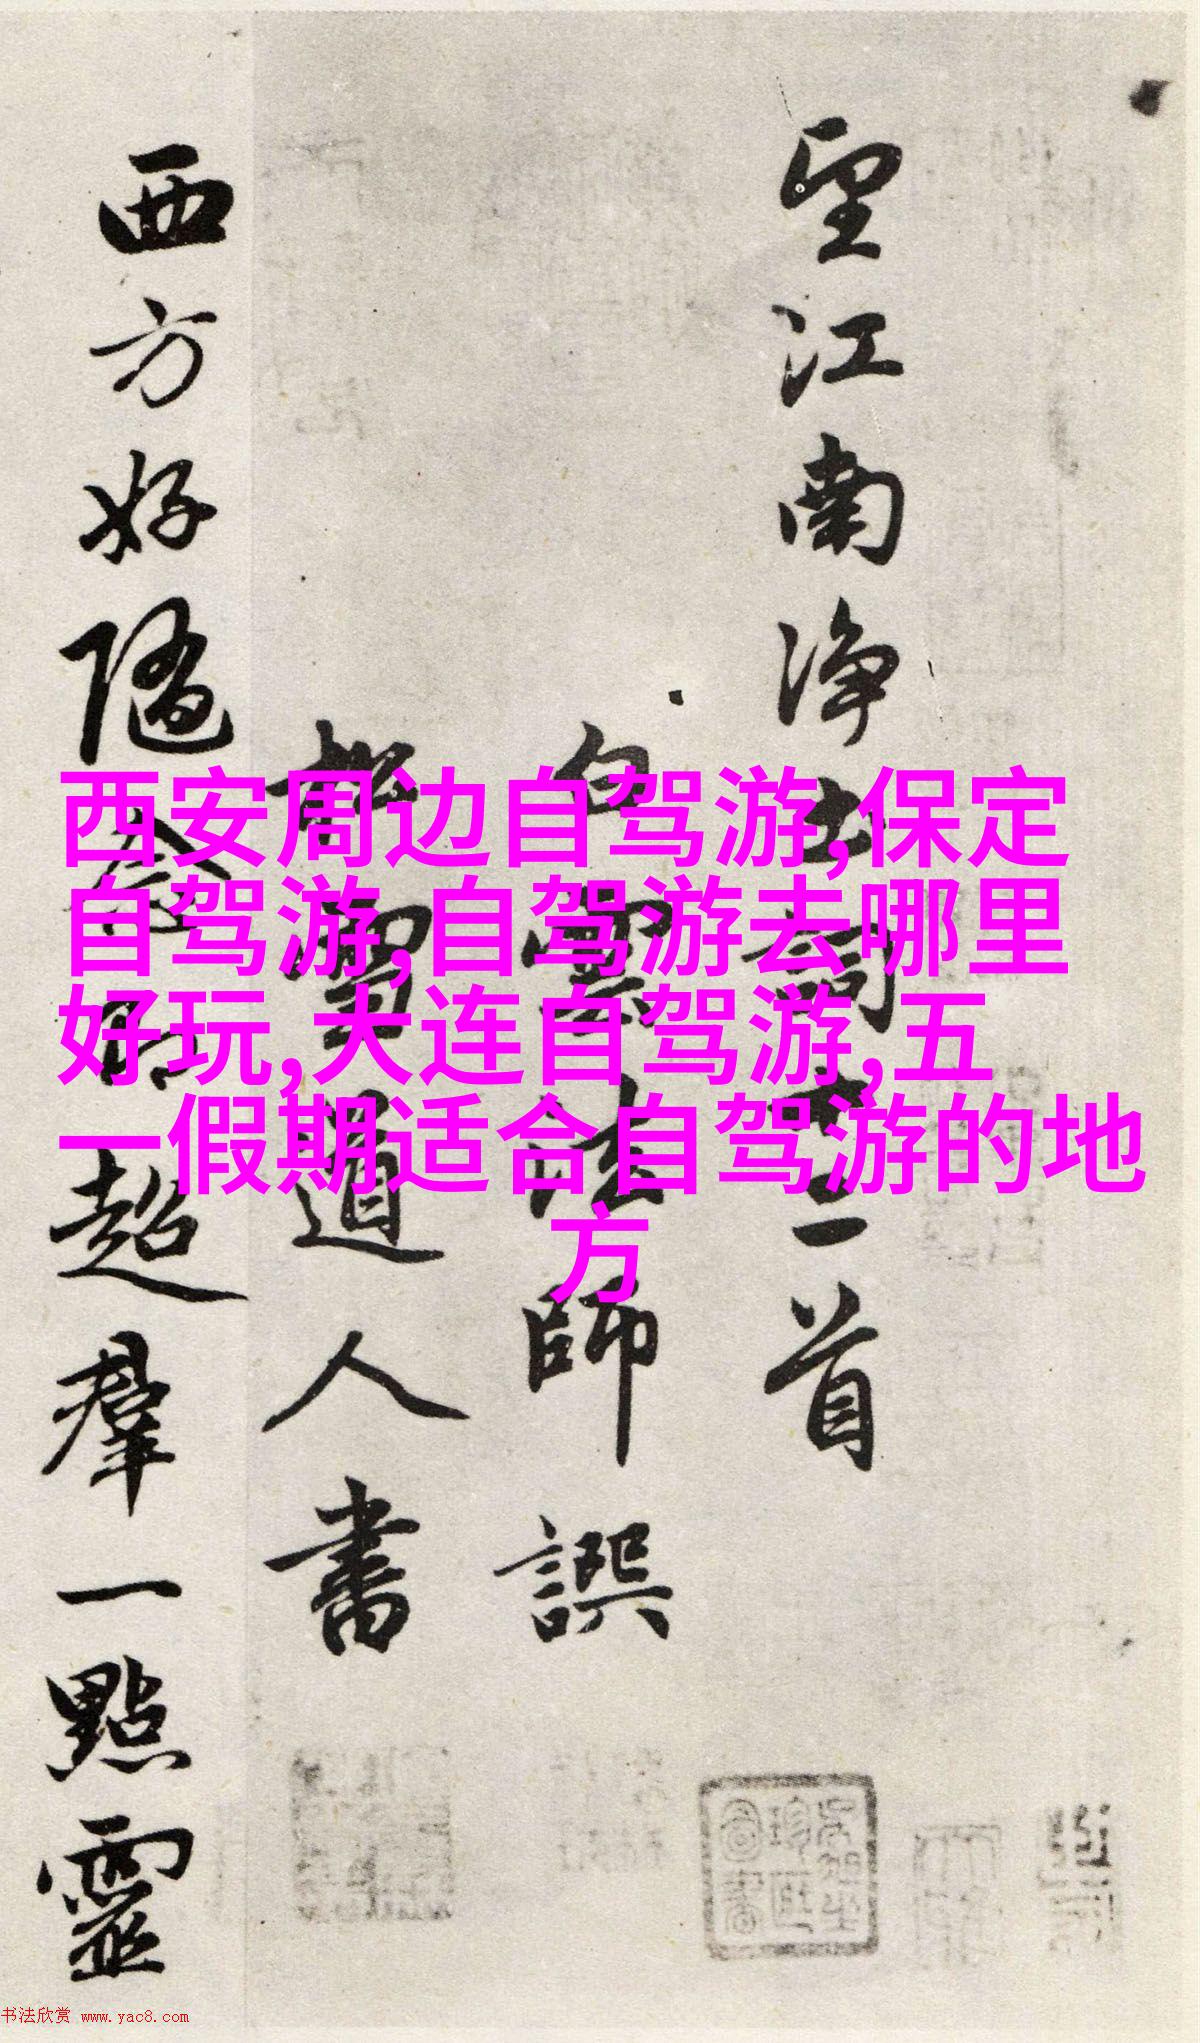 西安周边自驾游,保定
自驾游,自驾游去哪里
好玩,大连自驾游,五
一假期适合自驾游的地
方
望江南净土词十二首
白云法師譔
松雪道人書
西方好隨念即超羣一點靈
书法欣赏 www.yac8.com